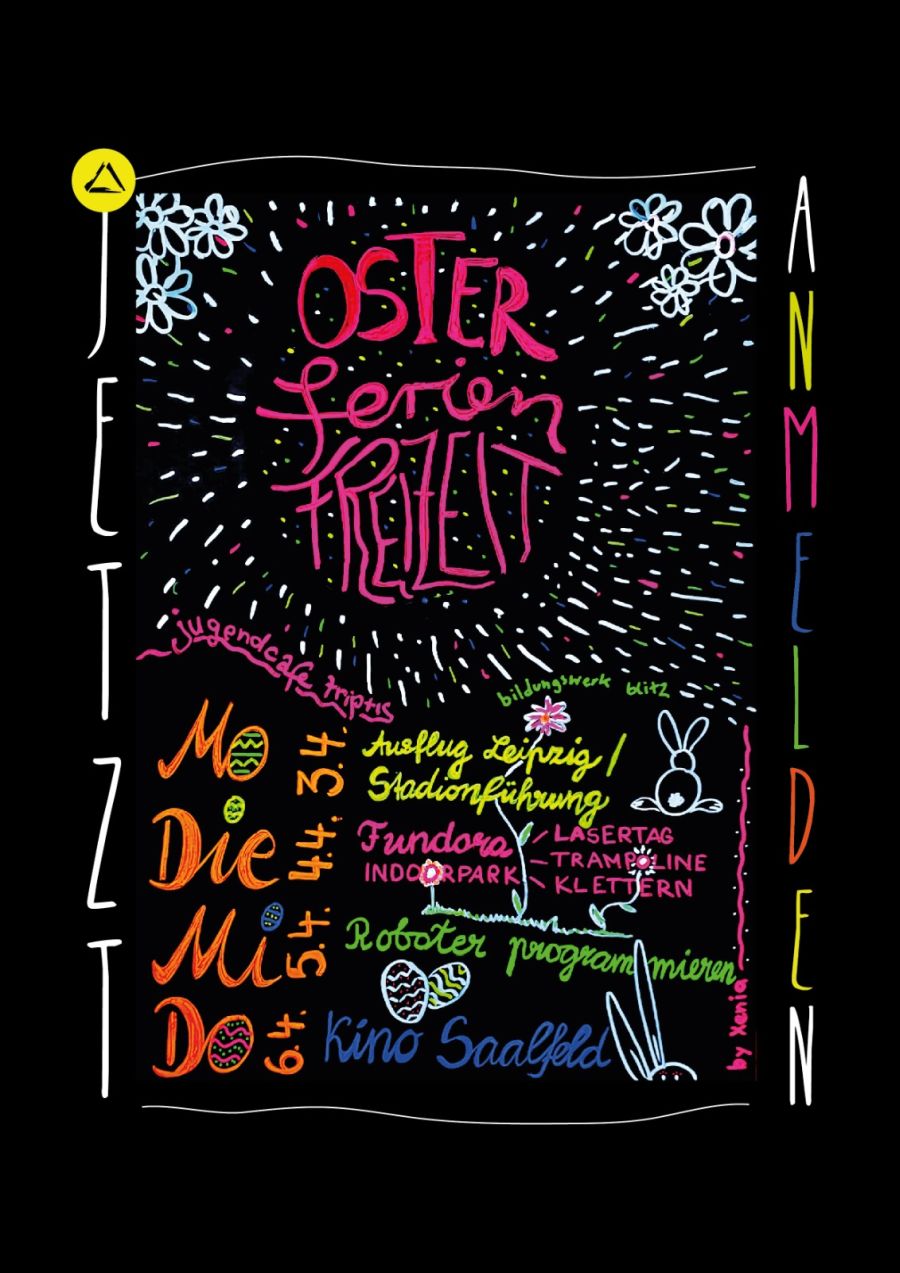 JETZT
ANMELDEN
OSTER
ferien
FREIZEIT
jugendcafe triptis
bildungswerk blitz
Mo 3.4. Ausflug Leipzig /
Stadionführung
Die 4.4. Fundora
INDOORPARK
LASERTAG
TRAMPOLINE
KLETTERN
Mi 5.4. Roboter programmieren
Do 6.4. Kino Saalfeld
by Xenia